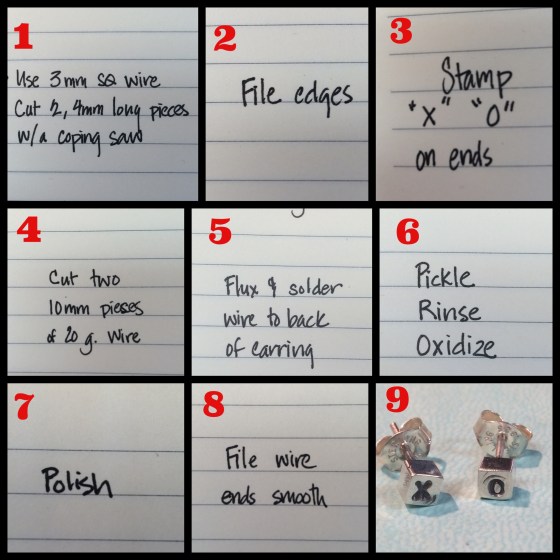 1
Use 3mm sq wire
Cut 2, 4mm long pieces
w/a coping saw
2
File edges
3
Stamp
"x" "o"
on ends
4
Cut two
10mm pieces
of 20 g. wire
5
Flux & solder
wire to back
of earring
6
Pickle
Rinse
Oxidize
7
Polish
8
File wire
ends smooth
9
X O